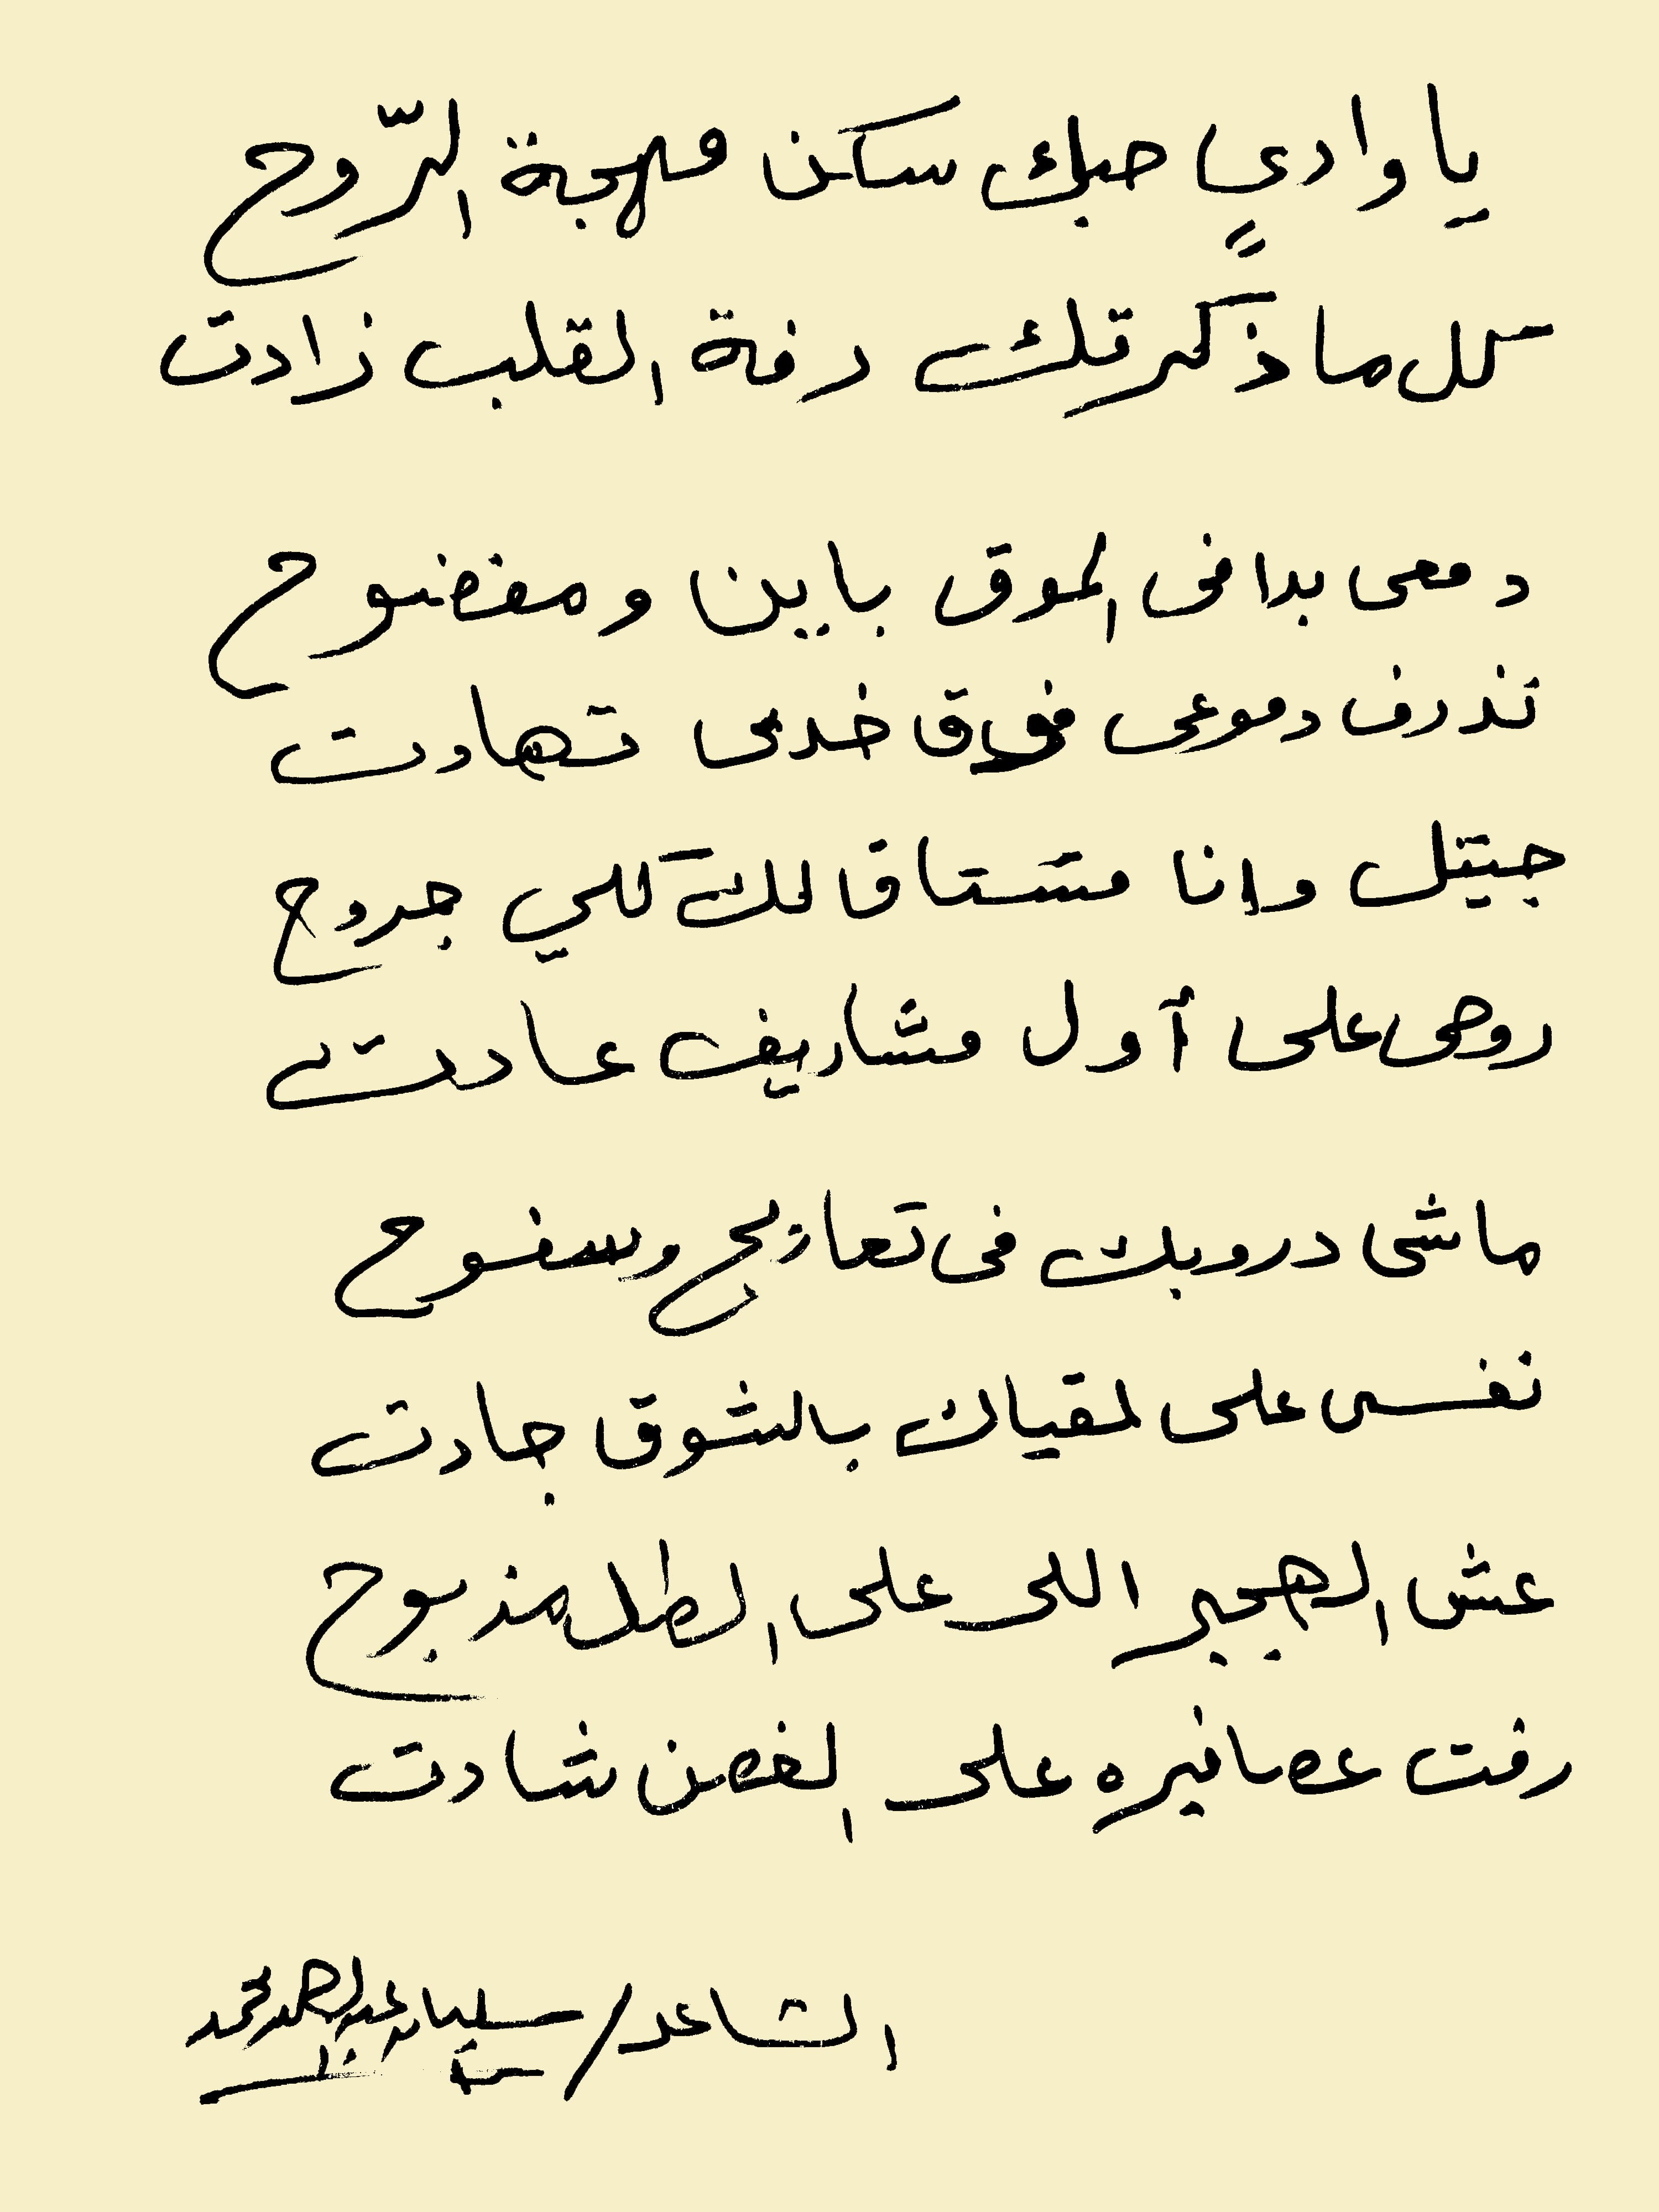 يا وادي حبك سكن مهجة الرّوح
كل ما ذكرتك رفة القلب زادت
دمعى بدا فى الموق باين ومفضوح
تذرف دموعى فوق خدى تهادت
جيتك وانا مشتاق لك كلي جروح
روحى على أول مشاريف عادت
ماشى دروبك فى تعاريج وسفوح
نفسى على لمقياك بالشوق جادت
عش الهجير اللى على الطل مذبوح
رفت عصافيره على الغصن شادت
الشاعر/ سليمان محمد